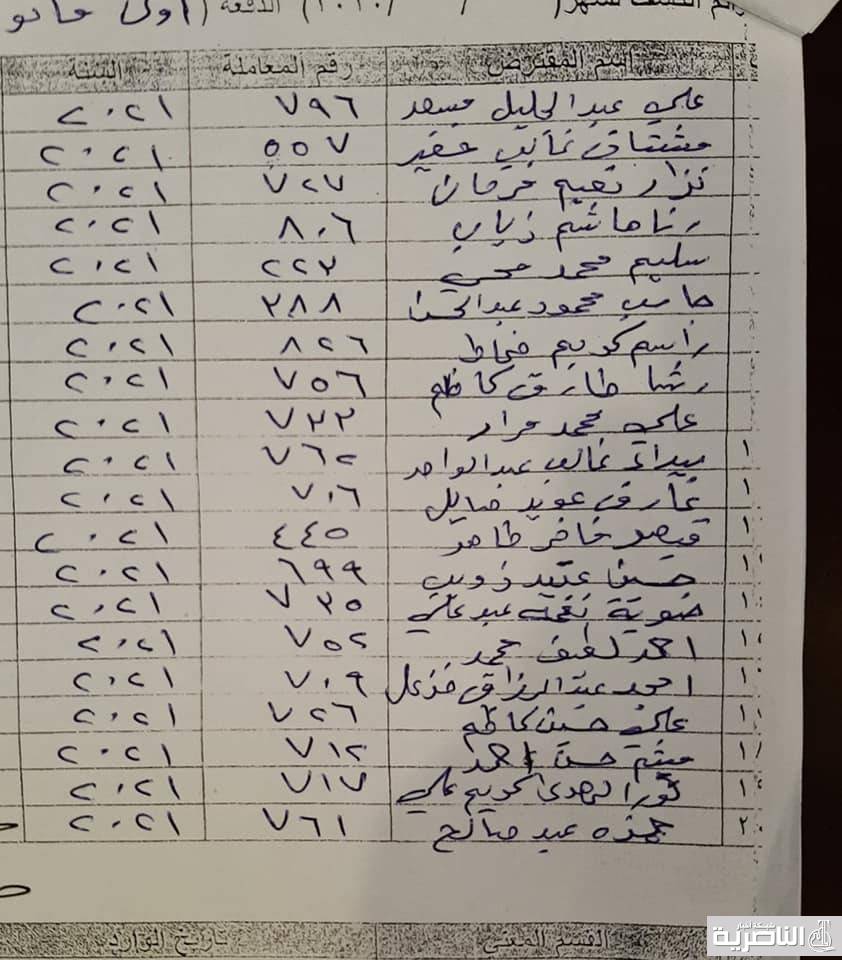 الدفعة (اولى
اسم المقترض رقم المعاملة السنة
علي عبد الجليل مسعد ٧٩٦ ٢٠٢١
مشتاق ٥٥٧ ٢٠٢١
نزار نعيم فرمان ٧٢٧ ٢٠٢١
رنا هاشم ذياب ٨٠٦ ٢٠٢١
سليم محمد محي ٢٢٣ ٢٠٢١
محمود عبد الحسن ٣٨٨ ٢٠٢١
راسم كريم ٨٢٦ ٢٠٢١
رشا طارق كاظم ٧٥٦ ٢٠٢١
علي محمد مراد ٧٣٣ ٢٠٢١
١ بيداء غالب عبد الواحد ٧٦٢ ٢٠٢١
١ عارف عويد ٧٠٦ ٢٠٢١
١ قيصر فاخر طاهر ٤٤٥ ٢٠٢١
حسين عتيد ذويب ٦٩٩ ٢٠٢١
١ ضوية نغمه عبد علي ٧٣٥ ٢٠٢١
احمد لطيف محمد ٧٥٢ ٢٠٢١
١ امجد عبد الرزاق خزعل ٧٠٩ ٢٠٢١
علي حسين كاظم ٧٢٦ ٢٠٢١
ميثم حسن احمد ٧١٢ ٢٠٢١
نور الهدى كريم علي ٧١٧ ٢٠٢١
٢٠ حمزه عبد صالح ٧٦١ ٢٠٢١
القسم المعني تاريخ الوارد
شبكة اخبار
الناصرية